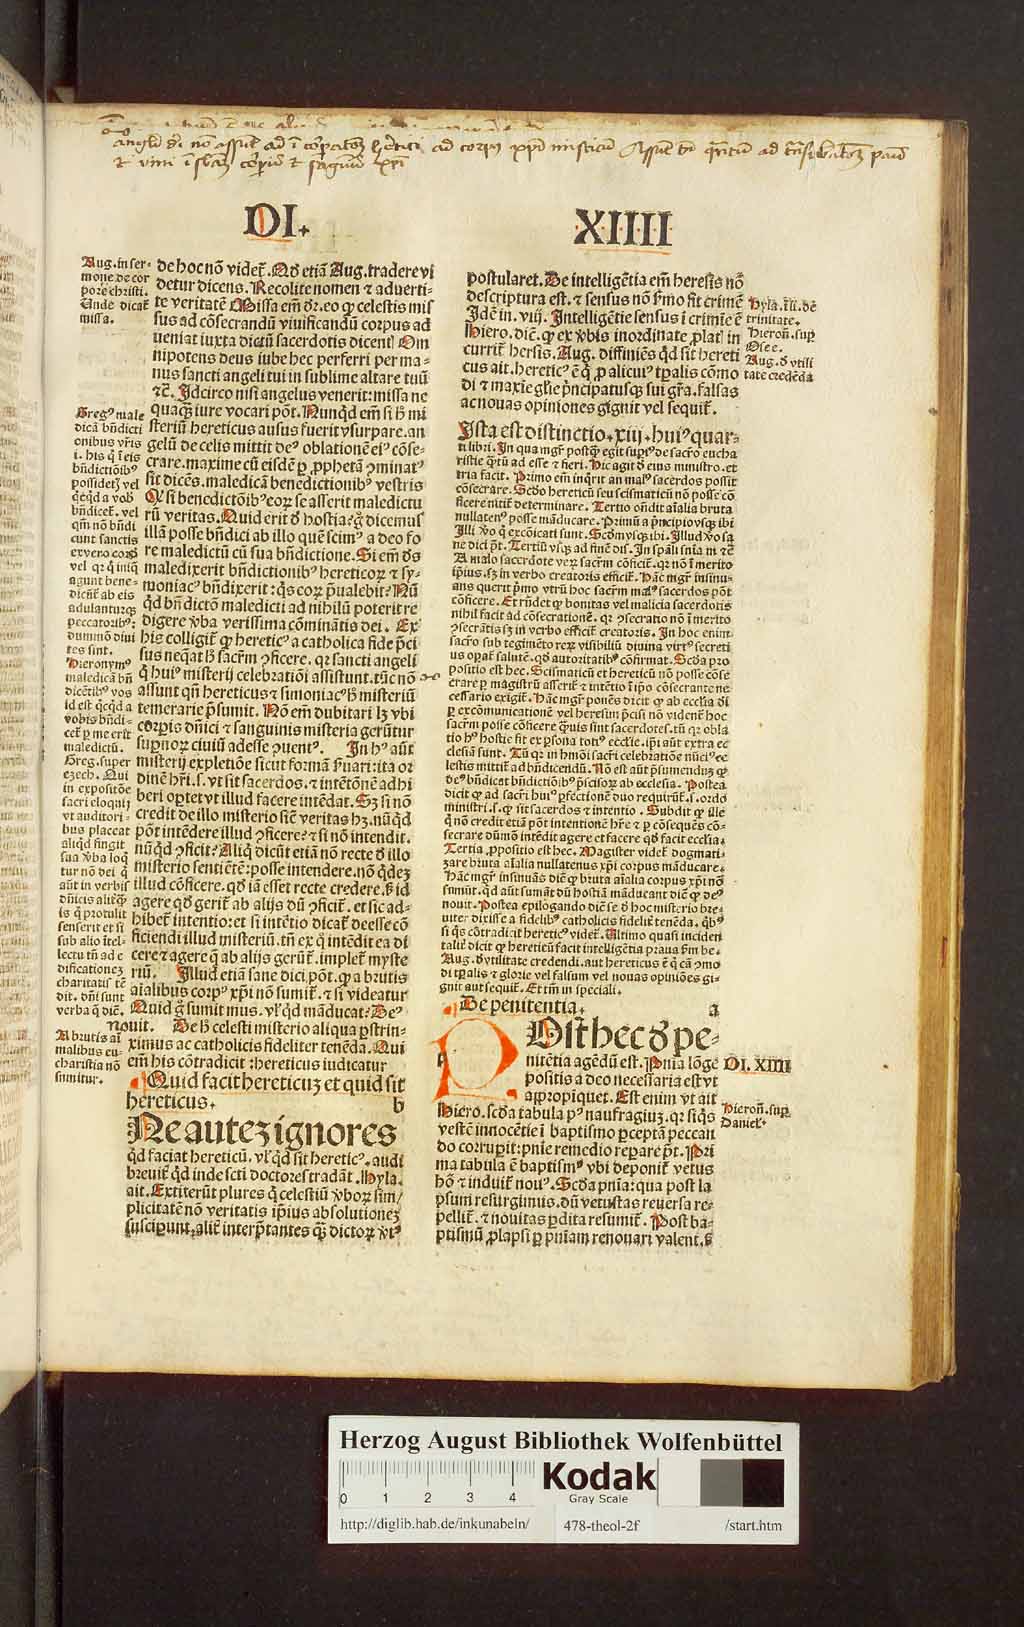 DI.
XIIII
Aug. in ser-
mone de cor
pore christi.
Unde dicat̃
missa.
de hoc nõ videt̃. Qđ etiã Aug. tradere vi
detur dicens. Recolite nomen & adverti-
te veritatẽ Missa em̃ dr̃. eo ꝙ celestis mis
sus ad cõsecrandũ viuificandũ corpus ad
ueniat iuxta dictũ sacerdotis dicent̃ Om
nipotens deus iube hec perferri per ma-
nus sancti angeli tui in sublime altare tuũ
⁊c̃. Idcirco nisi angelus venerit: missa ne
quaꝗ̃ iure vocari põt. Nunqd em̃ si h̃ mi
steriũ hereticus ausus fuerit vsurpare. an
gelũ de celis mittit deꝰ oblationẽ eiꝰ cõse-
crare. maxime cũ eisdẽ ꝑ ꝓphetã ꝯminatꝰ
sit dicẽs. maledicã benedictionibꝰ vestris
Qꝛ si benedictõibꝰ eoꝝ se asserit maledictu
rũ veritas. Quid erit đ hostia: g̃ dicemus
illã posse bñdici ab illo quẽ scimꝰ a deo fo
re maledictũ cũ sua bñdictione. Si em̃ đs
maledixerit bñdictionibꝰ hereticoꝝ & sy-
moniacꝰ bñdixerit: ꝗs eoꝝ p̃ualebit? Nũ
qđ bñdictõ maledicti ad nihilũ poterit re
digere v̾ba verissima cõminatĩs dei. Ex
his colligit̃ ꝙ hereticꝰ a catholica fide p̃ci
sus neqat h̃ sacr̃m ꝯficere. qꝛ sancti angeli
q̃ huiꝰ misterij celebratiõi assistunt. tũc nõ
assunt qñ hereticus & simoniacꝰ h̃ misteriũ
temerarie p̃sumit. Nõ em̃ dubitari lꝫ vbi
corꝑis dñici & sanguinis misteria gerũtur
supnoꝝ ciuiũ adesse ꝯuentꝰ. In hꝰ aũt
misterij expletiõe sicut formã s̃uari: ita or
dinẽ hr̃i. s. vt sit sacerdos. & intẽtõnẽ adhi
beri oꝑtet vt illud facere intẽdat. Sꝫ si nõ
credit de illo misterio sicut veritas hꝫ. nũqđ
põt intẽdere illud ꝯficere? & si nõ intendit.
nũqđ ꝯficit? Aliq̃ dicũt etiã nõ recte đ illo
misterio sentiẽtẽ: posse intendere. nõ q̃deꝫ
illud cõficere. qđ iã esset recte credere. sꝫ id
agere qđ gerit̃ ab alijs dũ ꝯficit̃. et sic ad-
hibet̃ intentio: et si intẽtio dicat̃ deesse cõ
ficiendi illud misteriũ. tñ ex q̃ intẽdit ea di
cere & agere q̃ ab alijs gerũt̃. implet̃ myste
riũ. Illud etiã sane dici põt. ꝙ a brutis
aĩalibus corpꝰ xp̃i nõ sumit̃. & si videatur
Quid g̃ sumit mus. vl̃ qđ mãducat? Deꝰ
nouit. De h̃ celesti misterio aliqua ꝑstrin-
ximus ac catholicis fideliter tenẽda. Qui
em̃ his cõtradicit: hereticus iudicatur
Quid facit hereticuꝫ et quid sit
hereticus. b
Ne auteꝫ ignores
qđ faciat hereticũ. vl̃ qđ sit hereticꝰ. audi
breuit̃ qđ inde scti doctores tradãt. Hyla.
ait. Extiterũt plures q̃ celestiũ v̾boꝝ sim/
plicitatẽ nõ veritatis ip̃ius absolutioneꝫ
susciperunt. alit̃ interp̃tantes ꝗ̃ dictoꝝ v̾tꝰ
Gregꝰ male
dicã bñdicti
onibus vr̃is
i. his q̃ ĩ eis
bñdictiõibꝰ
possidet̃ vel
q̃cqd a vob
bñdicet̃. vel
qm̃ nõ bñdi
cunt sanctis
ex vero cord
vel qꝛ q̃ iniq̃
agunt bene-
dicũt̃ ab eis
adulantur qꝫ
peccatoribꝰ:
dummõ diui
tes sint.
Hieronymꝰ
maledicã bñ
dicẽtibꝰ vos
id est q̃cqd a
vobis bñdi-
cet̃ ꝑ me erit
maledictũ.
Greg. super
ezech. Qui
in expositõe
sacri eloquij
vt auditori-
bus placeat
aliqd fingit
sua v̾ba loq̃
tur nõ dei q̃
aũt in verbis
dñicis alitꝗ̃
is q̃ protulit
senserit et si
sub alio ĩtel-
lectu tñ ad e
dificationeꝫ
charitatis tẽ
dit. dñi sunt
verba q̃ diẽ.
A brutis aĩ
malibus eu-
charistia nõ
sumitur.
postularet. De intelligẽtia em̃ heresis nõ
de scriptura est. & sensus nõ s̾mo fit crimẽ
Idẽ in. vij. Intelligẽtie sensus ĩ crimĩe ẽ
Hiero. diẽ. ꝙ ex v̾bis inordinate ꝓlatĩ in
currit̃ heresis. Aug. diffiniẽs qđ sit hereti
cus ait. hereticꝰ ẽ q̃ ꝓ alicuiꝰ tꝑalis cõmo
di & maxĩe gl̃ie p̃ncipatusqꝫ sui gr̃a. falsas
ac nouas opiniones gignit vel sequit̃.
Hyla. li. đ
trinitate.
Hieron̄. sup
Osee.
Aug. đ vtili
tate credẽda
Ista est distinctio. xiij. huiꝰ quar-
ti libri. In qua mgr̃ postꝗ̃ egit suꝑiꝰ de sacr̃o eucha
ristie q̃tũ ad esse & fieri. Hic agit đ eius ministro. et
tria facit. Primo em̃ inq̃rit an malꝰ sacerdos possit
cõsecrare. Scđo hereticũ seu scismaticũ nõ posse cõ
ficere nitit̃ determinare. Tertio oñdit aĩalia bruta
nullatenꝰ posse mãducare. Primũ a p̃ncipio vsqꝫ ibi
Illi v̾o q̃ excõicati sunt. Scđm vsqꝫ ibi. Illud v̾o sa
ne dici p̃t. Tertiũ vsqꝫ ad finẽ dis. In sp̃ali sñtĩa in ⁊c̃
A malo sacerdote veꝝ sacr̃m cõficit̃. qꝛ nõ ĩ merito
ip̃ius. sꝫ in verbo creatoris efficit̃. Hãc mgr̃ insinu-
ans querit p̃mo vtrũ hoc sacr̃m malꝰ sacerdos põt
cõficere. Et rñdet ꝙ bonitas vel malicia sacerdotis
nihil facit ad cõsecrationẽ. qꝛ ꝯsecratio nõ ĩ merito
ꝯsecrãtis sꝫ in verbo efficit̃ creatoris. In hoc enim
sacr̃o sub tegimẽto reꝝ visibiliũ diuina virtꝰ secreti
us oꝑat̃ salutẽ. qđ autoritatibꝰ cõfirmat. Scđa pro
positio est hec. Scismaticũ et hereticũ nõ posse cõse
crare ꝑ magistrũ asserit̃ & intẽtio ĩ ip̃o cõsecrante ne
cessario exigit̃. Hãc mgr̃ ponẽs dicit ꝙ ab ecclĩa đi
ꝑ excõmunicationẽ vel heresim p̃cisi nõ vident̃ hoc
sacr̃m posse cõficere q̃uis sint sacerdotes. tũ qꝛ obla
tio hꝰ hostie fit ex ꝑsona totiꝰ ecclĩe. ip̃i aũt extra ec
clesiã sunt. Tũ qꝛ in hmõi sacr̃i celebratiõe nũciꝰ ce
lestis mittit̃ ad bñdicendũ. Nõ est aũt p̃sumendũ ꝙ
deꝰ bñdicat bñdictiõibꝰ p̃scisorꝝ ab ecclesia. Postea
dicit ꝙ ad sacr̃i huiꝰ ꝑfectionẽ duo requirũt̃. s. ordo
ministri. s. ꝙ sit sacerdos & intentio. Subdit ꝙ ille
q̃ nõ credit etiã põt intentionẽ hr̃e & ꝑ cõsequẽs cõ-
secrare dũmõ intẽdit agere et facere qđ facit ecclĩa.
Tertia ꝓpositio est hec. Magister videt̃ dogmati-
zare bruta aĩalia nullatenus xp̃i corpus mãducare.
Hãc mgr̃ insinuãs diẽ ꝙ bruta aĩalia corpus xp̃i nõ
sumũt. qđ aũt sumãt dũ hostiã mãducant diẽ ꝙ deꝰ
nouit. Postea epilogando diẽ se đ hoc misterio bre-
uiter dixisse a fidelibꝰ catholicis fidelit̃ tenẽda. q̃bꝰ
si q̃s cõtradicit hereticꝰ videt̃. Ultimo quasi inciden
talit̃ dicit ꝙ hereticũ facit intelligẽtia praua s̾m be.
Aug. đ vtilitate credendi. aut hereticus ẽ q̃ cã ꝯmo
di tꝑalis & glorie vel falsum vel nouas opiniões gi-
gnit aut sequit̃. Et tm̃ in speciali.
De penitentia. a
Post hec đ pe-
nitẽtia agẽdũ est. Pnĩa lõge
positis a deo necessaria est vt
appropiquet. Est enim vt ait
Hiero. scđa tabula pꝰ naufragiuꝫ. qꝛ siq̃s
vestẽ innocẽtie ĩ baptismo ꝑceptã peccan
do corruꝑit: pnĩe remedio reꝑare p̃t. Pri
ma tabula ẽ baptismꝰ vbi deponit̃ vetus
hõ & induit̃ nouꝰ. Scđa pnĩa: qua post la
psum resurgimus. dũ vetustas reuersa re-
pellit̃. & nouitas ꝑdita resumit̃. Post ba-
ptismũ ꝓlapsi ꝑ pnĩam renouari valent. sꝫ
DI. XIIII
Hieron̄. sup
Danieł.
Herzog August Bibliothek Wolfenbüttel
0 1 2 3 4
Kodak
Gray Scale
http://diglib.hab.de/inkunabeln/ 478-theol-2f /start.htm